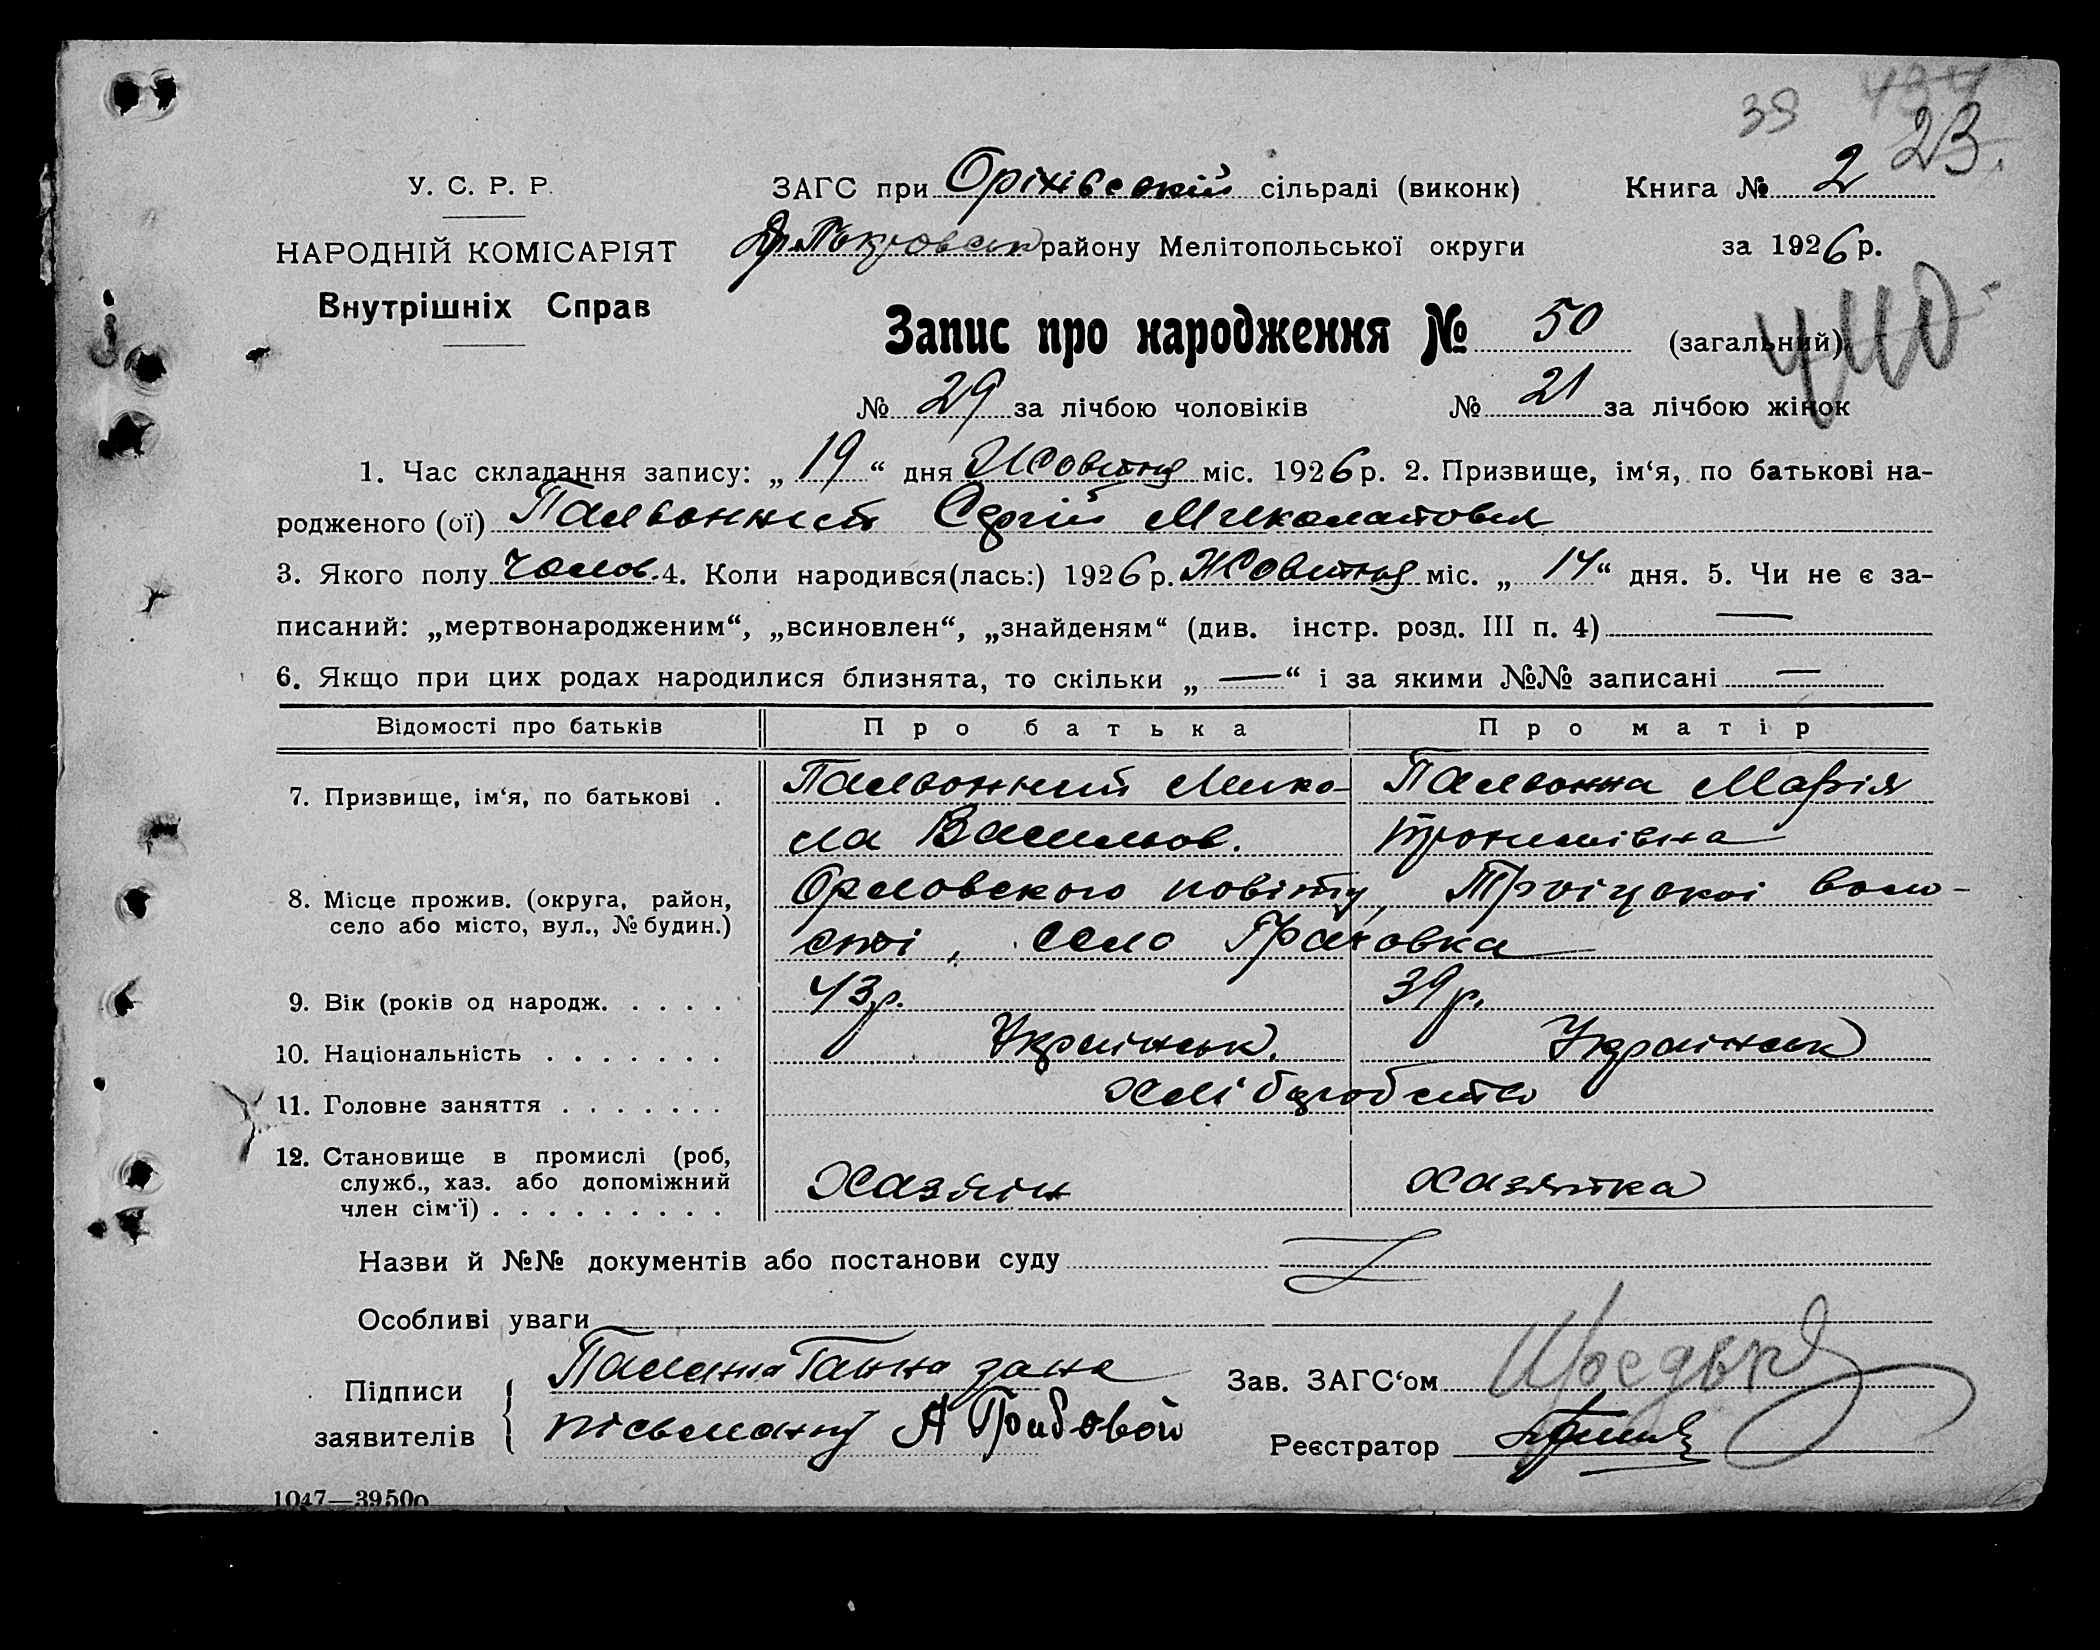 39 434
23.
У. С. Р. Р.
ЗАГС при Оріхівській сільраді (виконк) Книга № 2
НАРОДНІЙ КОМІСАРІЯТ
району Мелітопольської округи за 1926 р.
Внутрішніх Справ
Запис про народження № 50 (загальний)
440
№ 29 за лічбою чоловіків № 21 за лічбою жінок
1. Час складання запису: „ 19 “ дня Жовтня міс. 1926 р. 2. Призвище, ім‘я, по батькові на-
родженого (ої) Сергій Миколайович
3. Якого полу чолов. 4. Коли народився(лась:) 1926 р. Жовтня міс. „ 14 “ дня. 5. Чи не є за-
писаний: „мертвонародженим“, „всиновлен“, „знайденям“ (див. інстр. розд. III п. 4) —
6. Якщо при цих родах народилися близнята, то скільки „ — “ і за якими №№ записані —
Відомості про батьків Про батька Про матір
7. Призвище, ім‘я, по батькові . Мико- Марія
ла Васильов. Трохимівна
8. Місце прожив. (округа, район, Орловского повіту, Троіцкоі воло-
село або місто, вул., № будин.) сті, село
9. Вік (років од народж. . . . . 43 р. 39 р.
10. Національність . . . . . . . Українськ. Українськ
11. Головне заняття . . . . . . . хліборобство
12. Становище в промислі (роб,
служб., хаз. або допоміжний Хазяін хазяйка
член сім‘ї) . . . . . . . . .
Назви й №№ документів або постанови суду
Особливі уваги
Ганна
Підписи Зав. ЗАГС‘ом
заявителів А Грибовой
Реєстратор
1047—39500